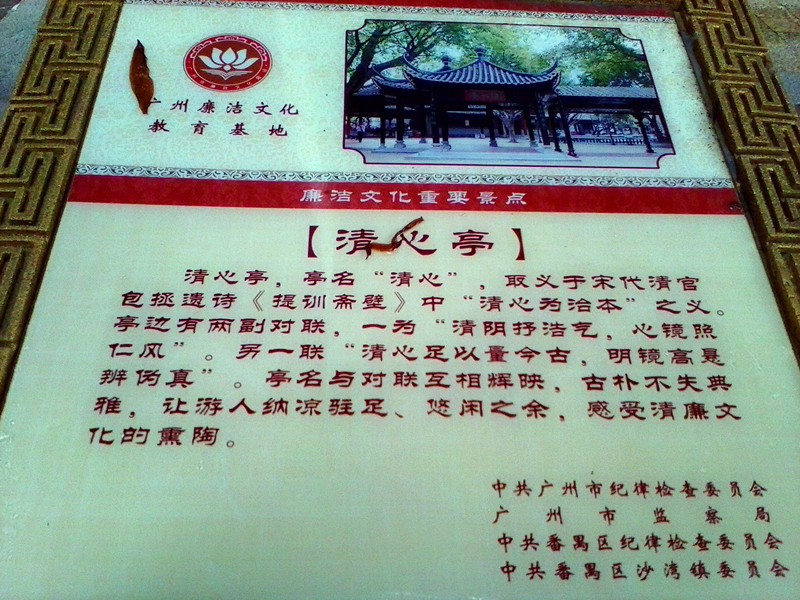 广州廉洁文化
教育基地
廉洁文化重要景点
【清心亭】
清心亭，亭名“清心”，取义于宋代清官
包拯遗诗《提训斋壁》中“清心为治本”之义。
亭边有两副对联，一为“清阴抒浩气，心镜照
仁风”。另一联“清心足以量今古，明镜高悬
辨伪真”。亭名与对联互相辉映，古朴不失典
雅，让游人纳凉驻足、悠闲之余，感受清廉文
化的熏陶。
中共广州市纪律检查委员会
广州市监察局
中共番禺区纪律检查委员会
中共番禺区沙湾镇委员会